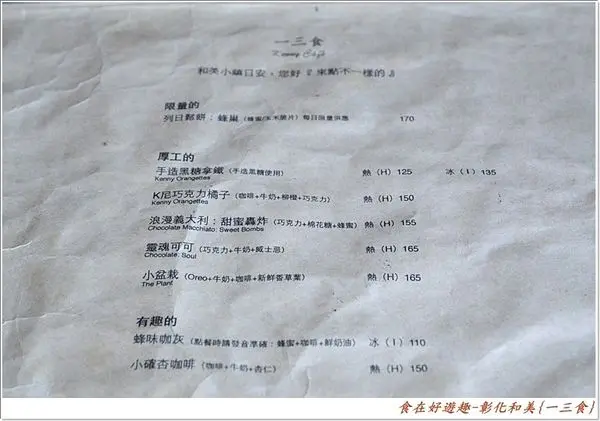 一三食
Kenny Café
和美小鎮日安，您好『來點不一樣的』
限量的
列日鬆餅：蜂巢（蜂蜜/玉米脆片）每日限量供應 170
厚工的
手造黑糖拿鐵（手造黑糖使用） 熱（H）125 冰（I）135
Kenny Orangettes
K尼巧克力橘子（咖啡+牛奶+柳橙+巧克力） 熱（H）150
Kenny Orangettes
浪漫義大利：甜蜜轟炸（巧克力+棉花糖+蜂蜜） 熱（H）155
Chocolate Macchiato: Sweet Bombs
靈魂可可（巧克力+牛奶+威士忌） 熱（H）165
Chocolate: Soul
小盆栽（Oreo+牛奶+咖啡+新鮮香草葉） 熱（H）165
The Plant
有趣的
蜂味咖灰（點餐時請發音準確：蜂蜜+咖啡+鮮奶油） 冰（I）110
小確杏咖啡（咖啡+牛奶+杏仁） 熱（H）150
食在好遊趣-彰化和美{一三食}